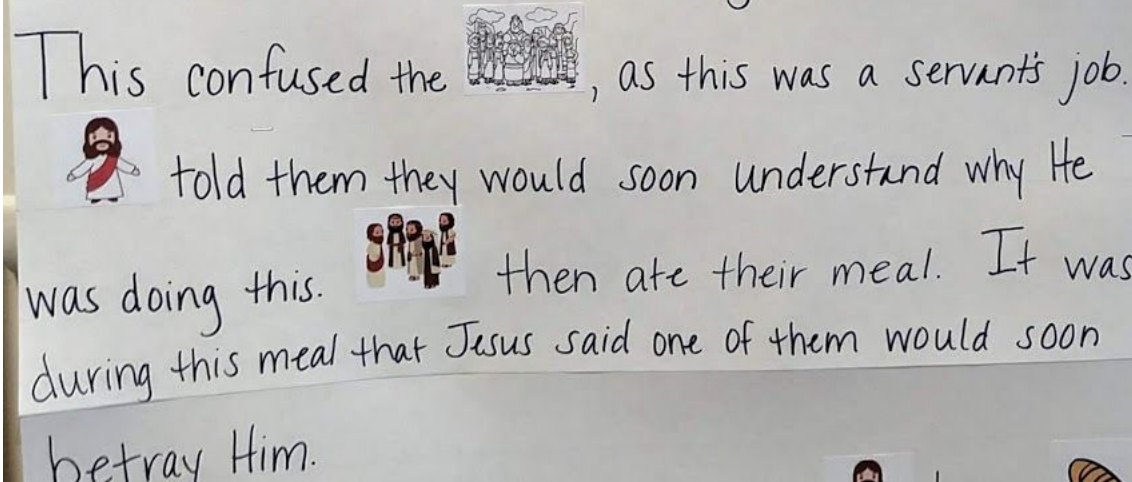 This confused the , as this was a servant's job.
told them they would soon understand why He
was doing this. then ate their meal. It was
during this meal that Jesus said one of them would soon
betray Him.